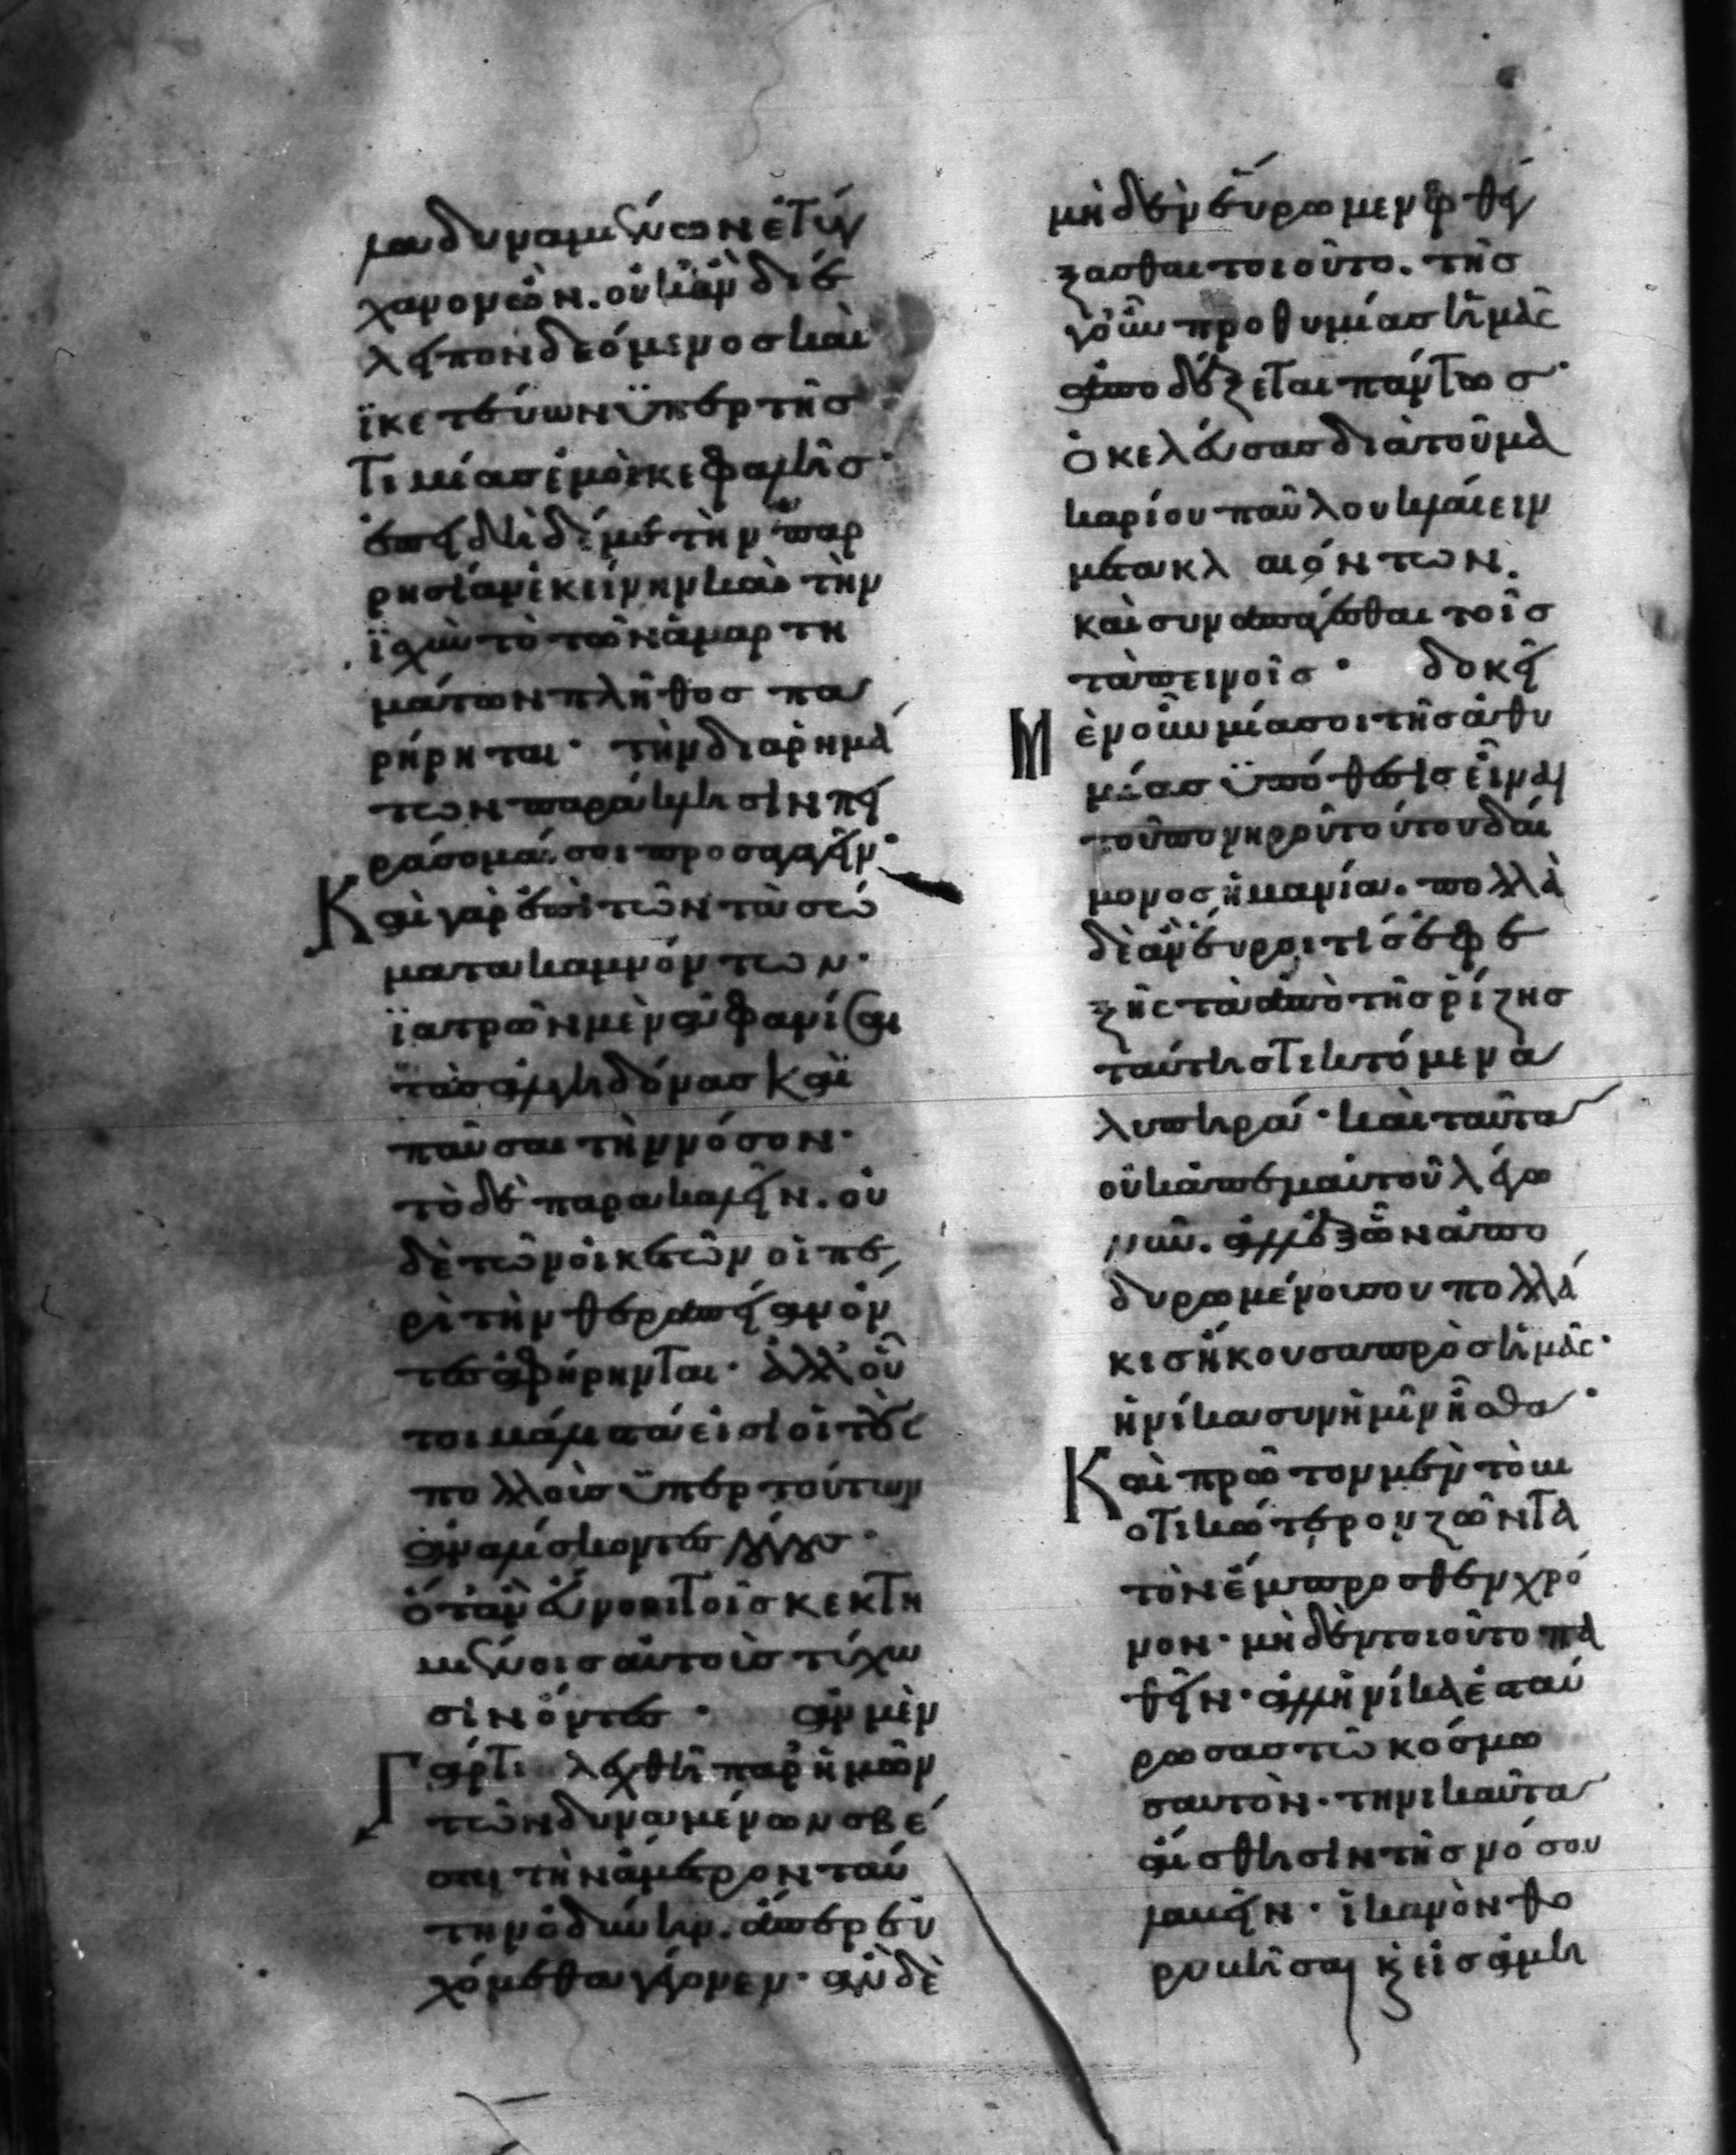 μαδυναμένων ἐτύγ
χανομεν. οὐκ ἂν διέ
λειπον δεόμενος καὶ
ἱκετεύων ὑπὲρ τῆς
τιμίας ἐμοὶ κεφαλῆς·
ἐπειδὴ δέ με τὴν παρ
ρησίαν ἐκείνην καὶ τὴν
ἰσχὺν τὸ τῶν ἁμαρτη
μάτων πλῆθος πα
ρήρηται· τὴν διὰ ῥημά
των παράκλησιν πει
ράσομαί σοι προσαγαγεῖν·
Καὶ γὰρ ἐπὶ τῶν τὰ σώ
ματα καμνόντων·
ἰατρῶν μὲν ἀφανίσαι
τὰς ἀλγηδόνας καὶ
παῦσαι τὴν νόσον·
τὸ δὲ παρακαλεῖν. οὐ
δὲ τῶν οἰκετῶν οἱ πε
ρὶ τὴν θεραπείαν ὄν
τες ἀφήρηνται· ἀλλ' οὗ
τοι μάλιστά εἰσι οἱ τοὺς
πολλοὺς ὑπὲρ τούτων
ἀναλίσκοντες λόγους·
ὅταν εὖνοι τοῖς κεκτη
μένοις αὐτοὺς τύχω
σιν ὄντες· ἂν μὲν
Γάρ τι λεχθῇ παρ' ἡμῶν
τῶν δυναμένων σβέ
σαι τὴν ἄμετρον ταύ
την ὀδύνην. ἅπερ εὐ
χόμεθα γέγονεν· ἂν δὲ
μηδὲν εὕρωμεν φθέγ
ξασθαι τοιοῦτο. τῆς
γοῦν προθυμίας ἡμᾶς
ἀποδέξεται πάντως·
ὁ κελεύσας διὰ τοῦ μα
καρίου παύλου κλαίειν
μετὰ κλαιόντων.
καὶ συναπάγεσθαι τοῖς
ταπεινοῖς· δοκεῖ
Μὲν οὖν μία σοι τῆς ἀθυ
μίας ὑπόθεσις εἶναι
τοῦ πονηροῦ τούτου δαί
μονος ἡ μανία. πολλὰ
δὲ ἂν εὕροι τις ἐφε
ξῆς τὰ ἀπὸ τῆς ῥίζης
ταύτης τικτόμενα
λυπηρά· καὶ ταῦτα
οὐκ ἀπ' ἐμαυτοῦ λέγω
νῦν. ἀλλ' ἐξ ὧν ἀπο
δυρωμένου σου πολλά
κις ἤκουσα πρὸς ἡμᾶς·
ἡνίκα συν ἡμῖν ἦσθα·
Καὶ πρῶτον μὲν τὸ μ
οτικώτερον ζῶντα
τὸν ἔμπροσθεν χρό
νον· μηδὲν τοιοῦτο πα
θεῖν· ἀλλ' ἡνίκα ἐσταύ
ρωσας τῷ κόσμω
σαυτὸν· τηνικαῦτα
αἴσθησιν τῆς νόσου
λαβεῖν· ἱκανὸν θο
ρυβῆσαι κ(αὶ) εἰς ἀμη